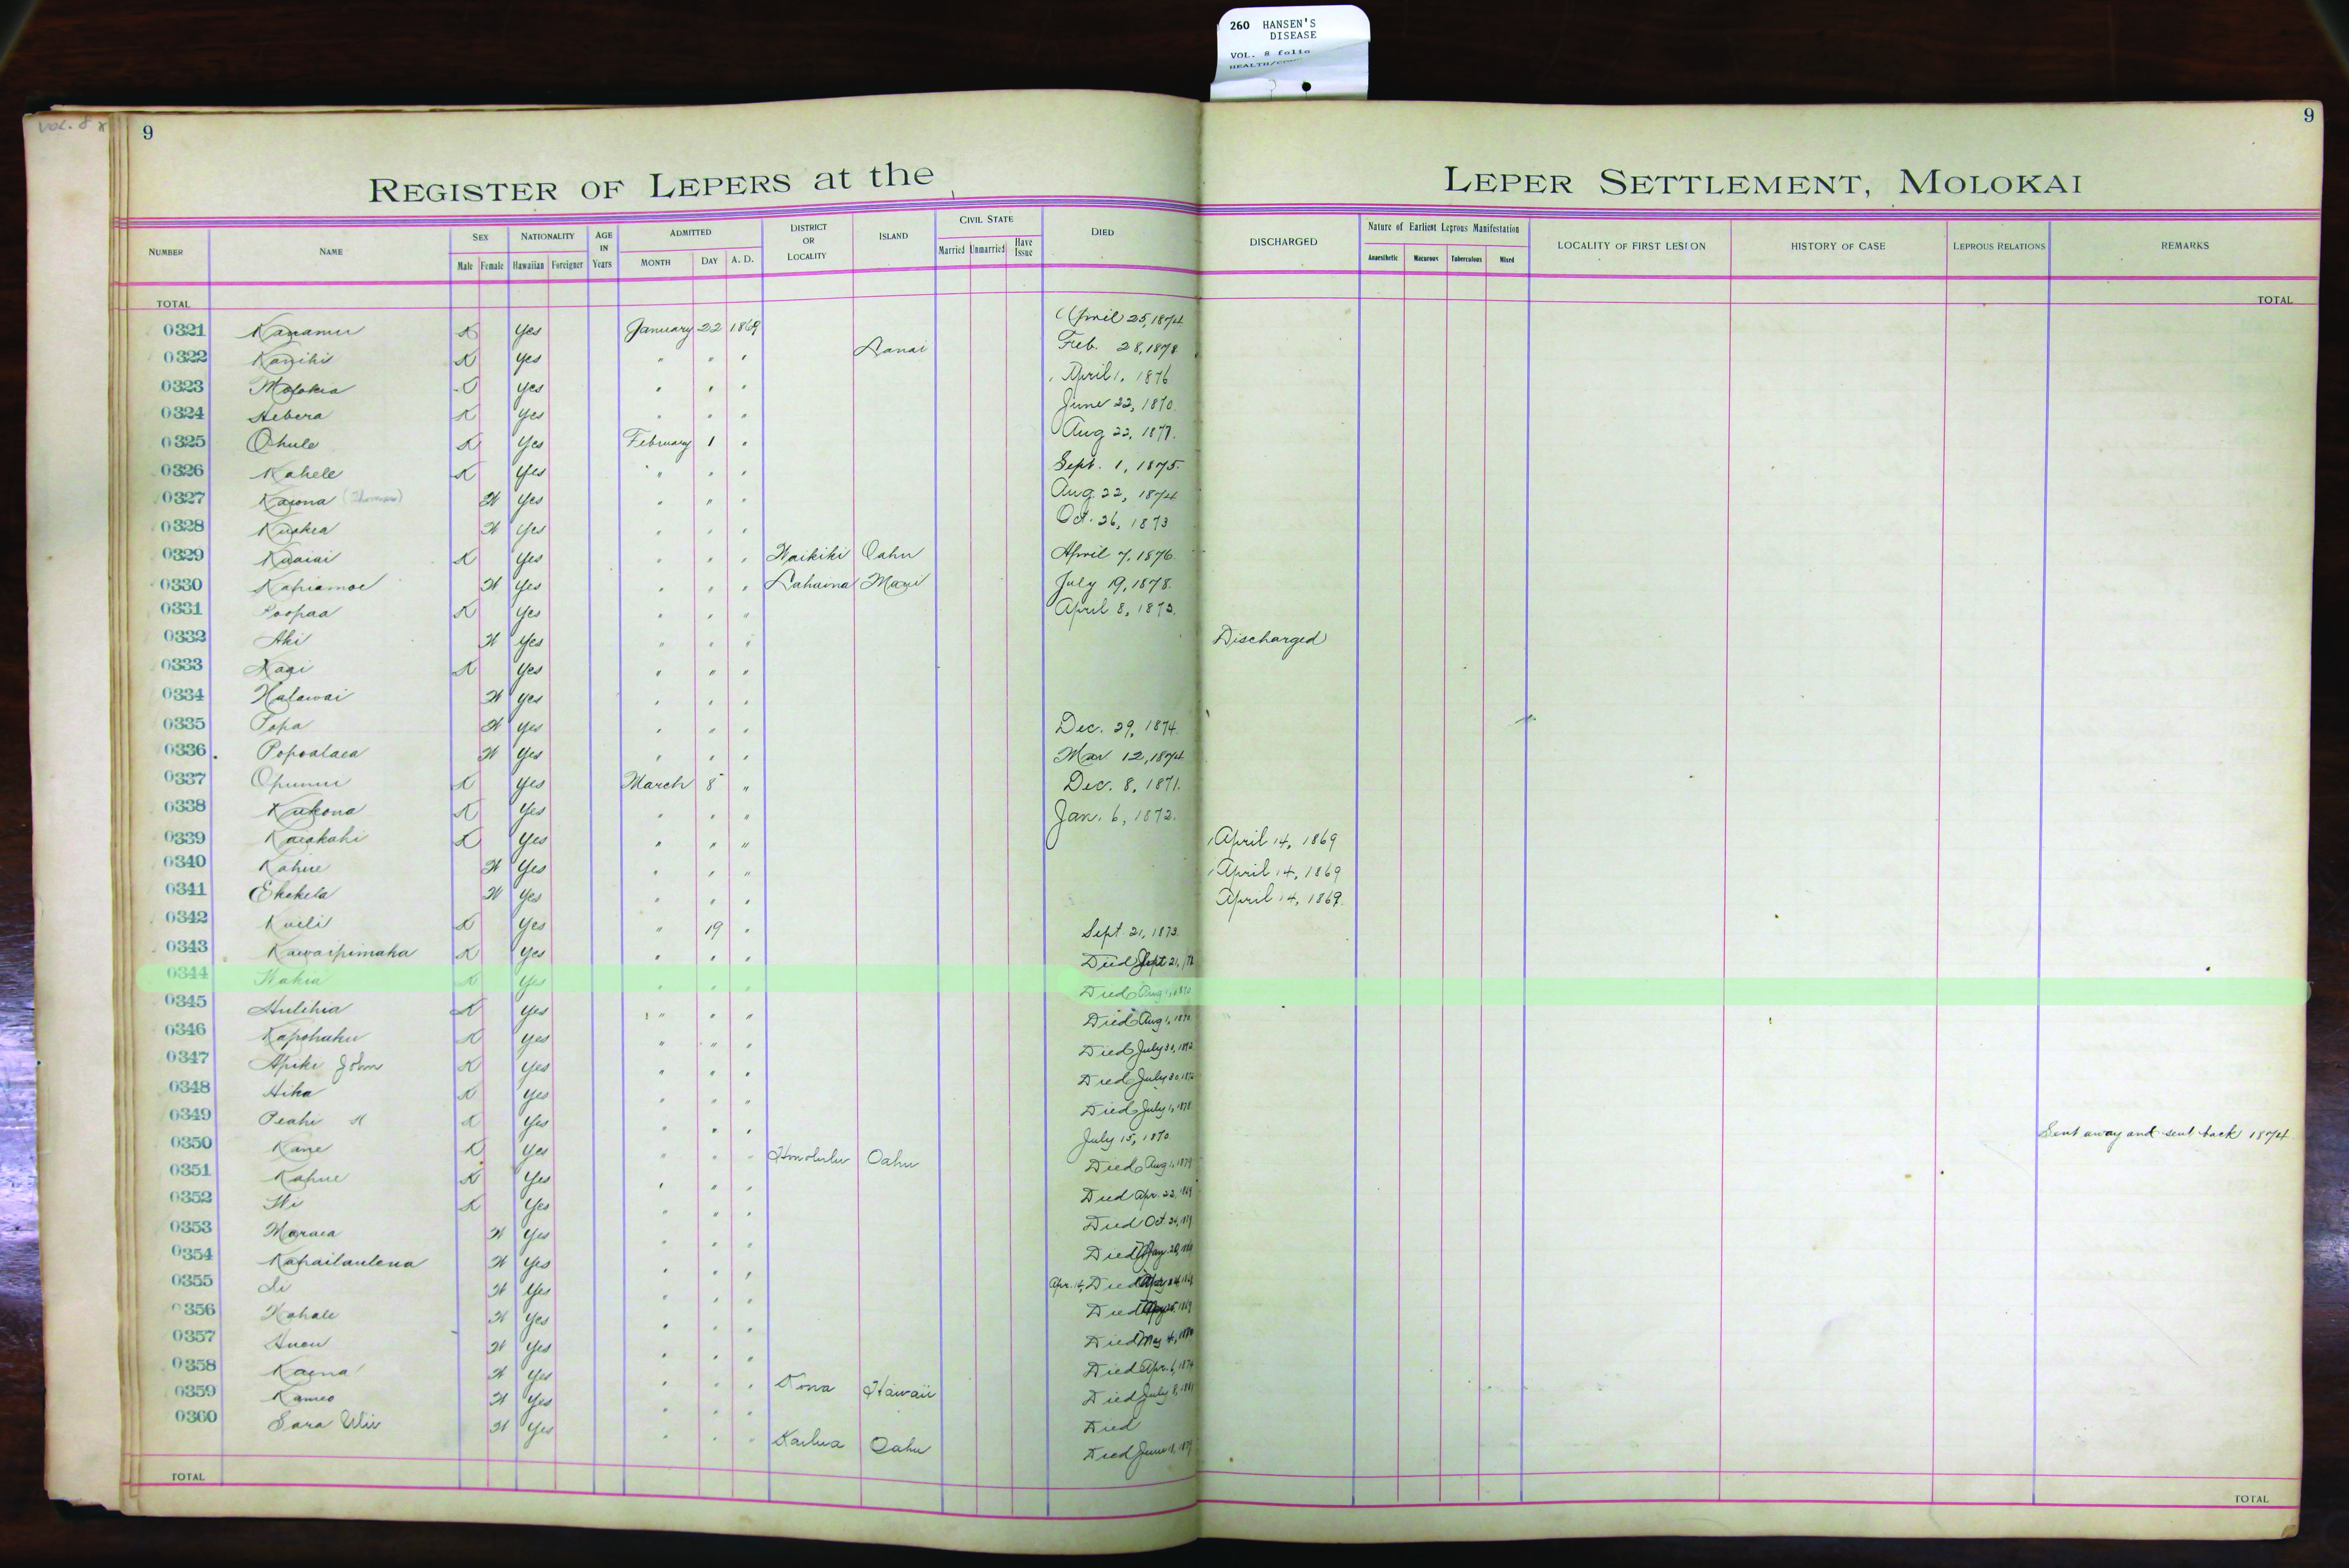 260 HANSEN'S
DISEASE
VOL. 8 folio
VOL. 8
9
9
REGISTER OF LEPERS at the LEPER SETTLEMENT, MOLOKAI
NUMBER NAME SEX Male Female NATIONALITY Hawaiian Foreigner AGE IN Years ADMITTED MONTH DAY A. D. DISTRICT OR LOCALITY ISLAND CIVIL STATE Married Unmarried Have Issue DIED DISCHARGED Nature of Earliest Leprous Manifestation Anaesthetic Macurous Tuberculous Mixed LOCALITY OF FIRST LESION HISTORY OF CASE LEPROUS RELATIONS REMARKS
TOTAL TOTAL
0321 Kanamu K Yes January 22 1869 April 25, 1874
0322 Kanihi K Yes " " " Lanai Feb. 28, 1878
0323 Molokia Yes " " " April 1, 1876
0324 Hebera K Yes " " " June 22, 1870
0325 Ohule K Yes February 1 " Aug 22, 1877.
0326 Kahele K Yes " " " Sept. 1, 1875.
0327 Kaiona (Thomas) W Yes " " " Aug. 22, 1874
0328 Kuakea W Yes " " " Oct. 26, 1873
0329 Kuaiai K Yes " " " Waikiki Oahu April 7, 1876.
0330 Kahiamoe W Yes " " " Lahaina Maui July 19, 1878.
0331 Poopaa K Yes " " " April 8, 1873.
0332 Aki W Yes " " " Discharged
0333 Kaai K Yes " " "
0334 Halawai W Yes " " "
0335 Popa W Yes " " " Dec. 29, 1874.
0336 Popoalaea W Yes " " " Mar 12, 1874
0337 Opunui K Yes March 8 " Dec. 8, 1871.
0338 Kukona K Yes " " " Jan. 6, 1872.
0339 Kaiakahi K Yes " " " April 14, 1869
0340 Kahue W Yes " " " April 14, 1869
0341 Ekekela W Yes " " " April 14, 1869.
0342 Kuili K Yes " 19 " Sept. 21, 1873.
0343 Kawaipimaka K Yes " " " Died Sept 21,
0344 Wahia K Yes " " " Died Aug 1, 1870
0345 Hulihia K Yes " " " Died Aug 1, 1870
0346 Kapohaku K Yes " " " Died July 30, 1872
0347 Apiki John K Yes " " " Died July 30, 1872
0348 Hika K Yes " " " Died July 1, 1878
0349 Peahi K Yes " " " July 15, 1870. Sent away and sent back 1874
0350 Kane K Yes " " " Honolulu Oahu Died Aug 1, 1879
0351 Kahue K Yes " " " Died Apr. 22, 1869
0352 Wi K Yes " " " Died Oct. 24,
0353 Maraea W Yes " " " Died May 20, 1869
0354 Kahailaulena W Yes " " " Apr. 14, Died
0355 Li W Yes " " " Died
0356 Kahale W Yes " " " Died May 4,
0357 Auou W Yes " " " Died Apr. 6, 1874
0358 Kaena W Yes " " " Kona Hawaii Died July 8, 1881
0359 Kameo W Yes " " " Died
0360 Sara Ulii W Yes " " " Kailua Oahu Died June 18, 1879
TOTAL TOTAL